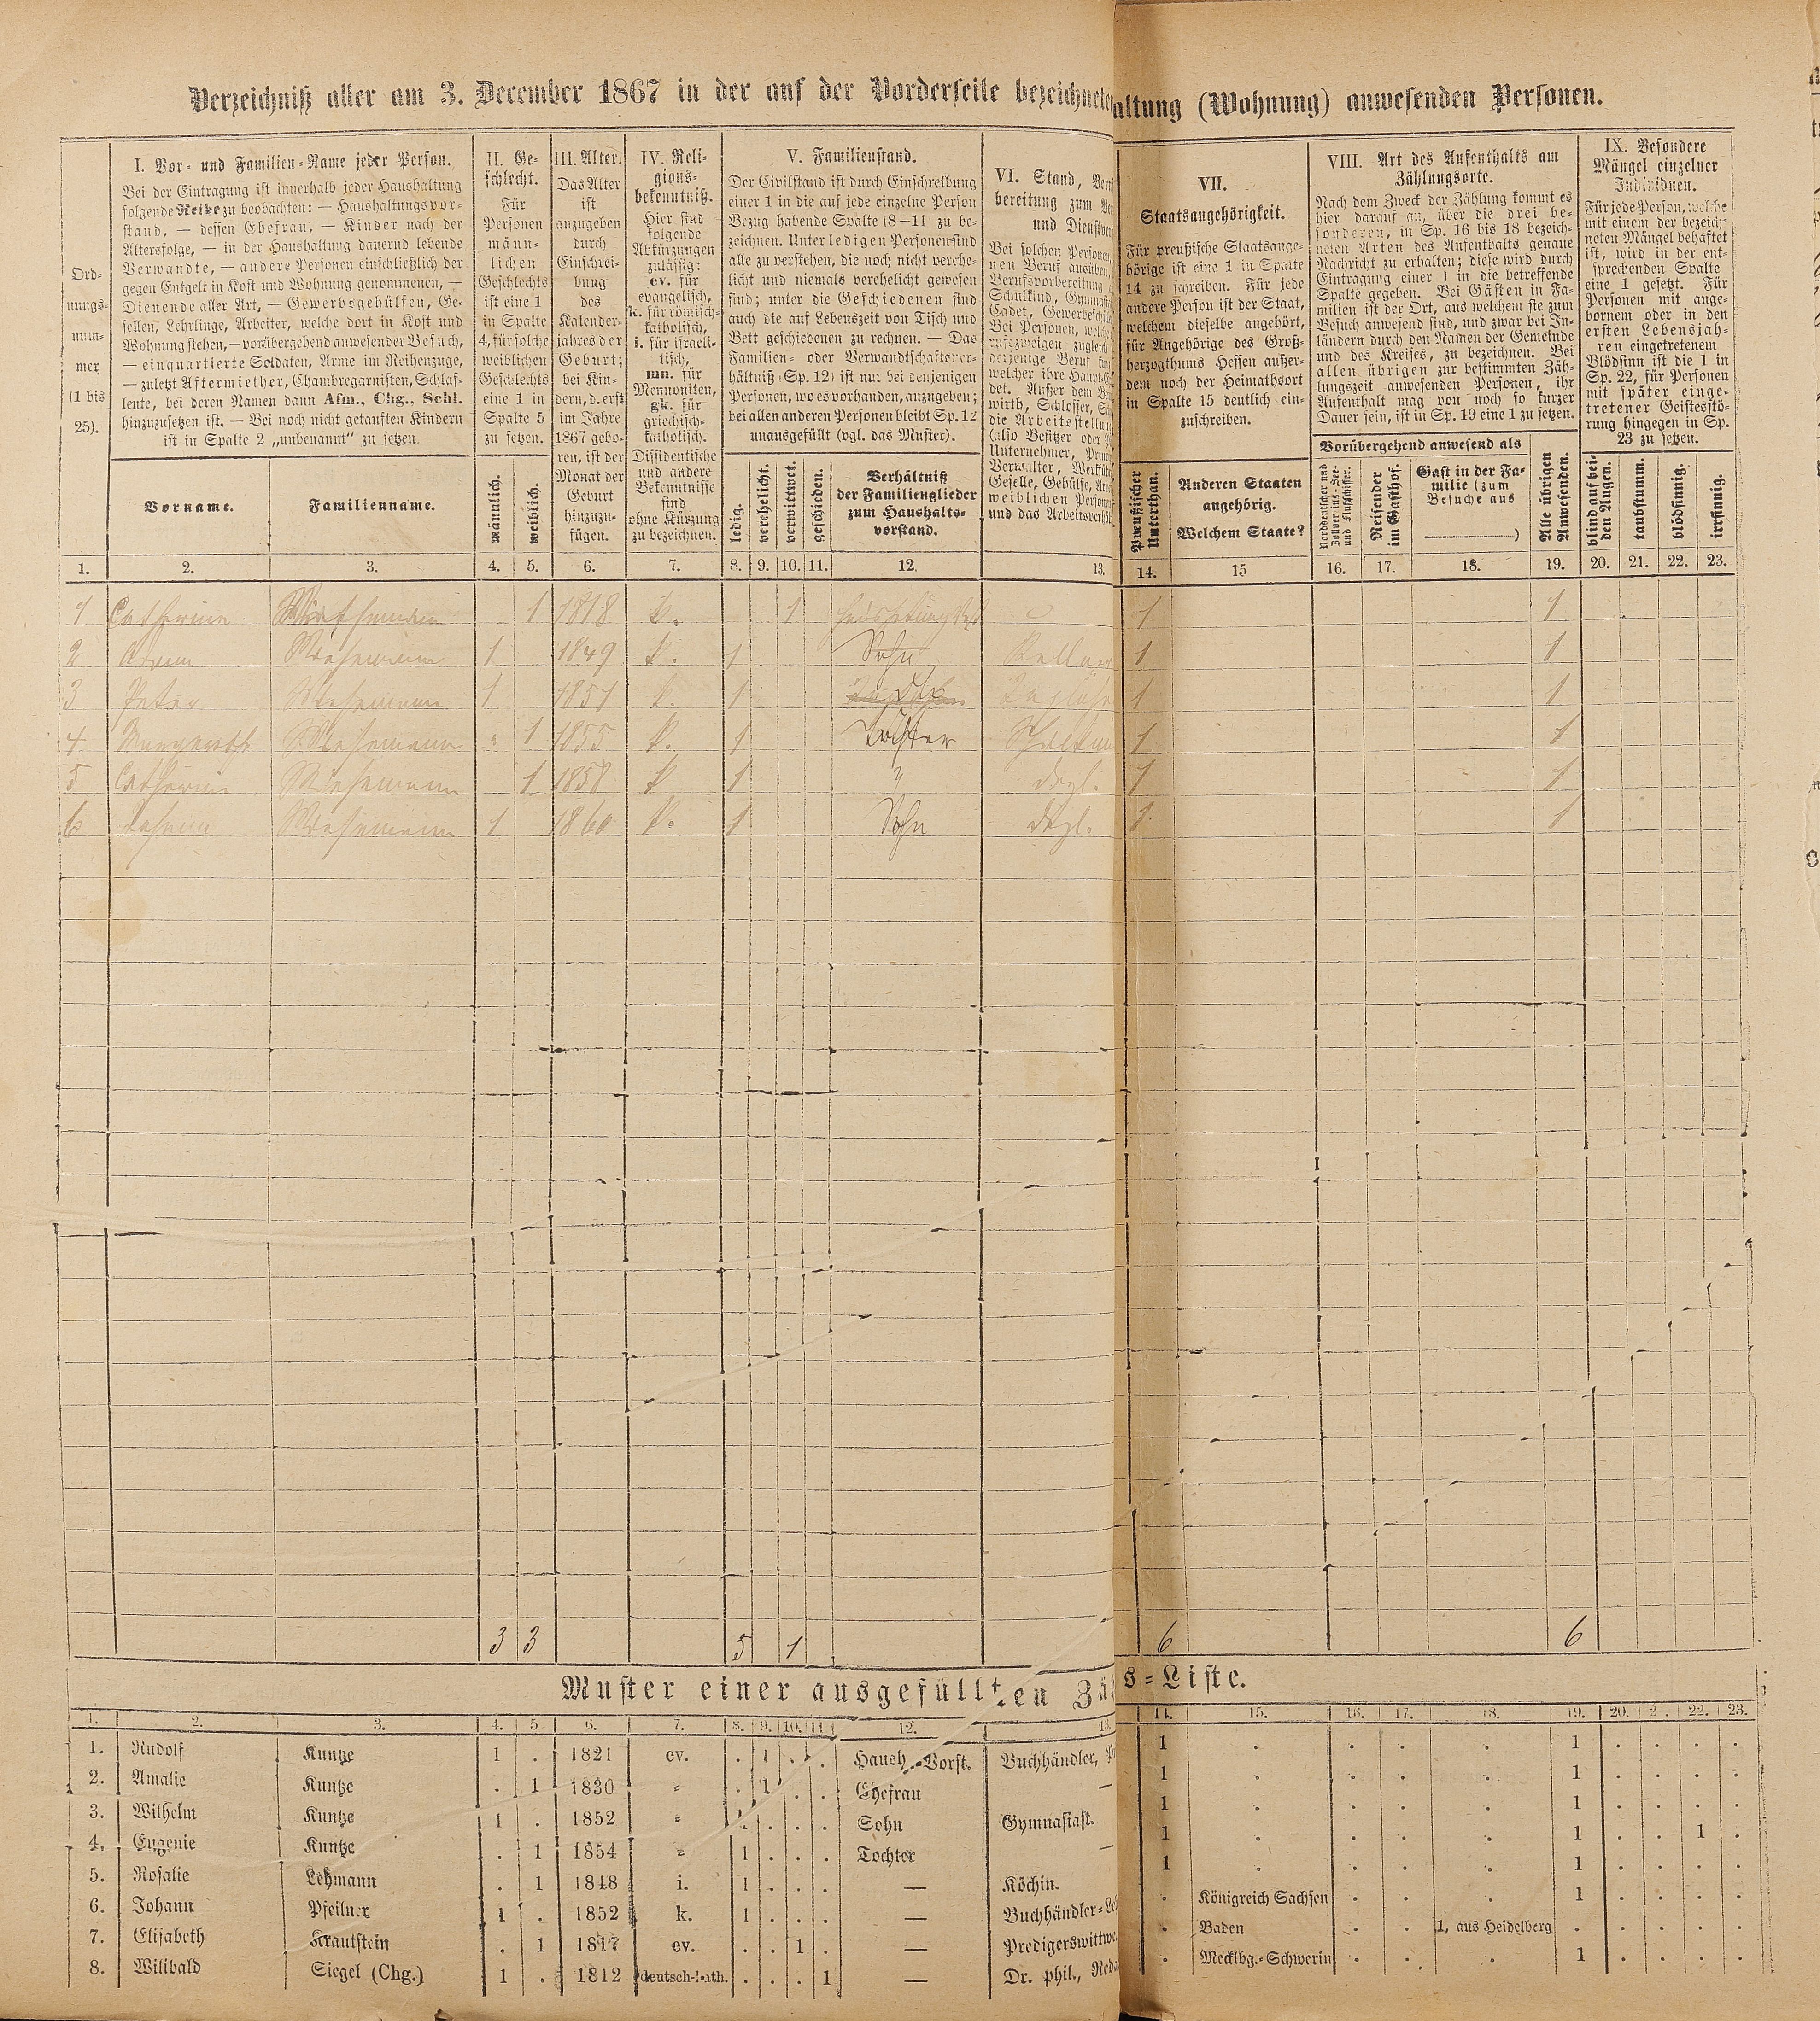 Verzeichniß aller am 3. December 1867 in der auf der Vorderseite bezeichnete
altung (Wohnung) anwesenden Personen.
Ord-
nungs-
num-
mer
(1 bis
25).
I. Vor- und Familien-Name jeder Person.
Bei der Eintragung ist innerhalb jeder Haushaltung
folgende Reihe zu beobachten: — Haushaltungsvor-
stand, — dessen Ehefrau, — Kinder nach der
Altersfolge, — in der Haushaltung dauernd lebende
Verwandte, — andere Personen einschließlich der
gegen Entgelt in Kost und Wohnung genommenen, —
Dienende aller Art, — Gewerbsgehülfen, Ge-
sellen, Lehrlinge, Arbeiter, welche dort in Kost und
Wohnung stehen, — vorübergehend anwesender Besuch,
— einquartierte Soldaten, Arme im Reihenzuge,
— zuletzt Aftermiether, Chambregarnisten, Schlaf-
leute, bei deren Namen dann Afm., Chg., Schl.
hinzuzusetzen ist. — Bei noch nicht getauften Kindern
ist in Spalte 2 „unbenannt“ zu setzen.
Vorname.
Familienname.
II. Ge-
schlecht.
Für
Personen
männ-
lichen
Geschlechts
ist eine 1
in Spalte
4, für solche
weiblichen
Geschlechts
eine 1 in
Spalte 5
zu setzen.
männlich.
weiblich.
III. Alter.
Das Alter
ist
anzugeben
durch
Einschrei-
bung
des
Kalender-
jahres der
Geburt;
bei Kin-
dern, d. erst
im Jahre
1867 gebo-
ren, ist der
Monat der
Geburt
hinzuzu-
fügen.
IV. Reli-
gions-
bekenntniß.
Hier sind
folgende
Abkürzungen
zulässig:
ev. für
evangelisch,
k. für römisch-
katholisch,
i. für israeli-
tisch,
mn. für
Mennoniten,
gk. für
griechisch-
katholisch.
Dissidentische
und andere
Bekenntnisse
sind
ohne Kürzung
zu bezeichnen.
V. Familienstand.
Der Civilstand ist durch Einschreibung
einer 1 in die auf jede einzelne Person
Bezug habende Spalte (8—11 zu be-
zeichnen. Unter ledigen Personen sind
alle zu verstehen, die noch nicht verehe-
licht und niemals verehelicht gewesen
sind; unter die Geschiedenen sind
auch die auf Lebenszeit von Tisch und
Bett geschiedenen zu rechnen. — Das
Familien- oder Verwandtschaftsver-
hältniß (Sp. 12) ist nur bei denjenigen
Personen, wo es vorhanden, anzugeben;
bei allen anderen Personen bleibt Sp. 12
unausgefüllt (vgl. das Muster).
ledig.
verehelicht.
verwittwet.
geschieden.
Verhältniß
der Familienglieder
zum Haushalts-
vorstand.
VI. Stand,
bereitung zum
und Dienst
Bei solchen Personen,
nen Beruf ausüben,
Berufsvorbereitung
Schulkind,
Cadet,
Bei Personen,
zugleich
derjenige Beruf
welcher ihre
det. Außer dem
wirth, Schlosser,
die Arbeitsstellung
(also Besitzer oder
Unternehmer,
Verwalter,
Geselle, Gehülfe,
weiblichen Personen
und das
VII.
Staatsangehörigkeit.
Für preußische Staatsange-
hörige ist eine 1 in Spalte
14 zu schreiben. Für jede
andere Person ist der Staat,
welchem dieselbe angehört,
für Angehörige des Groß-
herzogthums Hessen außer-
dem noch der Heimathsort
in Spalte 15 deutlich ein-
zuschreiben.
Preußischer
Unterthan.
Anderen Staaten
angehörig.
Welchem Staate?
VIII. Art des Aufenthalts am
Zählungsorte.
Nach dem Zweck der Zählung kommt es
hier darauf an, über die drei be-
sonderen, in Sp. 16 bis 18 bezeich-
neten Arten des Aufenthalts genaue
Nachricht zu erhalten; diese wird durch
Eintragung einer 1 in die betreffende
Spalte gegeben. Bei Gästen in Fa-
milien ist der Ort, aus welchem sie zum
Besuch anwesend sind, und zwar bei In-
ländern durch den Namen der Gemeinde
und des Kreises, zu bezeichnen. Bei
allen übrigen zur bestimmten Zäh-
lungszeit anwesenden Personen, ihr
Aufenthalt mag von noch so kurzer
Dauer sein, ist in Sp. 19 eine 1 zu setzen.
Vorübergehend anwesend als
Norddeutscher und
Zollvereins-See-
und Flußschiffer.
Reisender
im Gasthof.
Gast in der Fa-
milie (zum
Besuche aus
)
Alle übrigen
Anwesenden.
IX. Besondere
Mängel einzelner
Individuen.
Für jede Person, welche
mit einem der bezeich-
neten Mängel behaftet
ist, wird in der ent-
sprechenden Spalte
eine 1 gesetzt. Für
Personen mit ange-
bornem oder in den
ersten Lebensjah-
ren eingetretenem
Blödsinn ist die 1 in
Sp. 22, für Personen
mit später einge-
tretener Geistesstö-
rung hingegen in Sp.
23 zu setzen.
blind auf bei-
den Augen.
taubstumm.
blödsinnig.
irrsinnig.
1. 2. 3. 4. 5. 6. 7. 8. 9. 10. 11. 12. 13. 14. 15 16. 17. 18. 19. 20. 21. 22. 23.
1 Catharina 1 1818 k. 1 1 1
2 Adam 1 1849 k. 1 Sohn Kellner 1 1
3 Peter 1 1851 k. 1 1 1
4 Margareth 1 1855 k. 1 Tochter 1 1
5 Catharina 1 1858 k 1 " dergl. 1 1
6 Johann 1 1860 k. 1 Sohn dergl. 1 1
3 3 5 1 6 6
Muster einer ausgefüllten Zäh
s-Liste.
1. 2. 3. 4. 5. 6. 7. 8. 9. 10. 11. 12. 13. 14. 15. 16. 17. 18. 19. 20. 2 . 22. 23.
1. Rudolf Kuntze 1 . 1821 ev. . 1 . . Haush.-Vorst. Buchhändler, 1 . . . . 1 . . . .
2. Amalie Kuntze . 1 1830 = . 1 . . Ehefrau — 1 . . . . 1 . . . .
3. Wilhelm Kuntze 1 . 1852 = 1 . . . Sohn Gymnasiast. 1 . . . . 1 . . . .
4. Eugenie Kuntze . 1 1854 = 1 . . . Tochter — 1 . . . . 1 . . 1 .
5. Rosalie Lehmann . 1 1848 i. 1 . . . — Köchin. 1 . . . . 1 . . . .
6. Johann Pfeilner 1 . 1852 k. 1 . . . — Buchhändler-Le . Königreich Sachsen . . . 1 . . . .
7. Elisabeth Krautstein . 1 1817 ev. . . 1 . — Predigerswittwe . Baden . . 1, aus Heidelberg . . . . .
8. Wilibald Siegel (Chg.) 1 . 1812 deutsch-kath. . . . 1 — Dr. phil., Reda . Mecklbg.-Schwerin . . . 1 . . . .